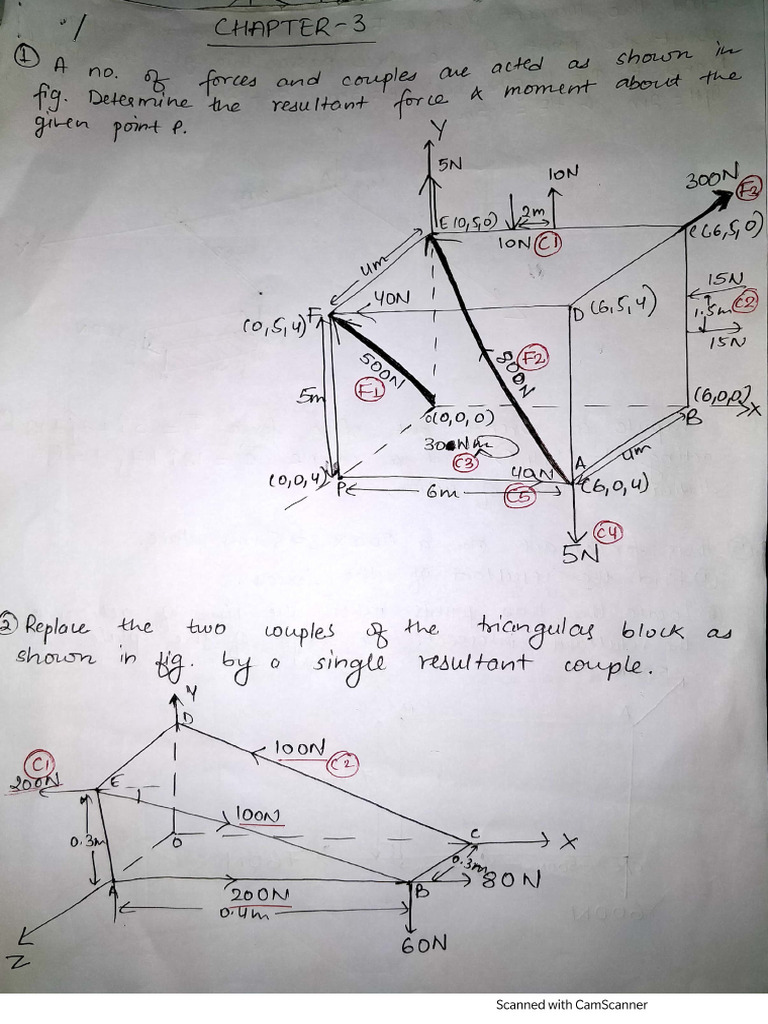 CHAPTER-3
① A no. of forces and couples are acted as shown in
fig. Determine the resultant force & moment about the
given point P.
Y
5N
10N
300N
F3
E(0,5,0)
2m
10N
C1
C(6,5,0)
4m
40N
15N
F
(0,5,4)
D(6,5,4)
1.5m
C2
15N
500N
F1
F2
800N
5m
(6,0,0)
X
B
O(0,0,0)
30Nm
C3
4m
(0,0,4)
P
6m
40N
C5
A
(6,0,4)
C4
5N
② Replace the two couples of the triangular block as
shown in fig. by a single resultant couple.
Y
D
C1
200N
E
100N
C2
100N
0.3m
O
C
X
0.3m
A
200N
B
80N
0.4m
60N
Z
Scanned with CamScanner